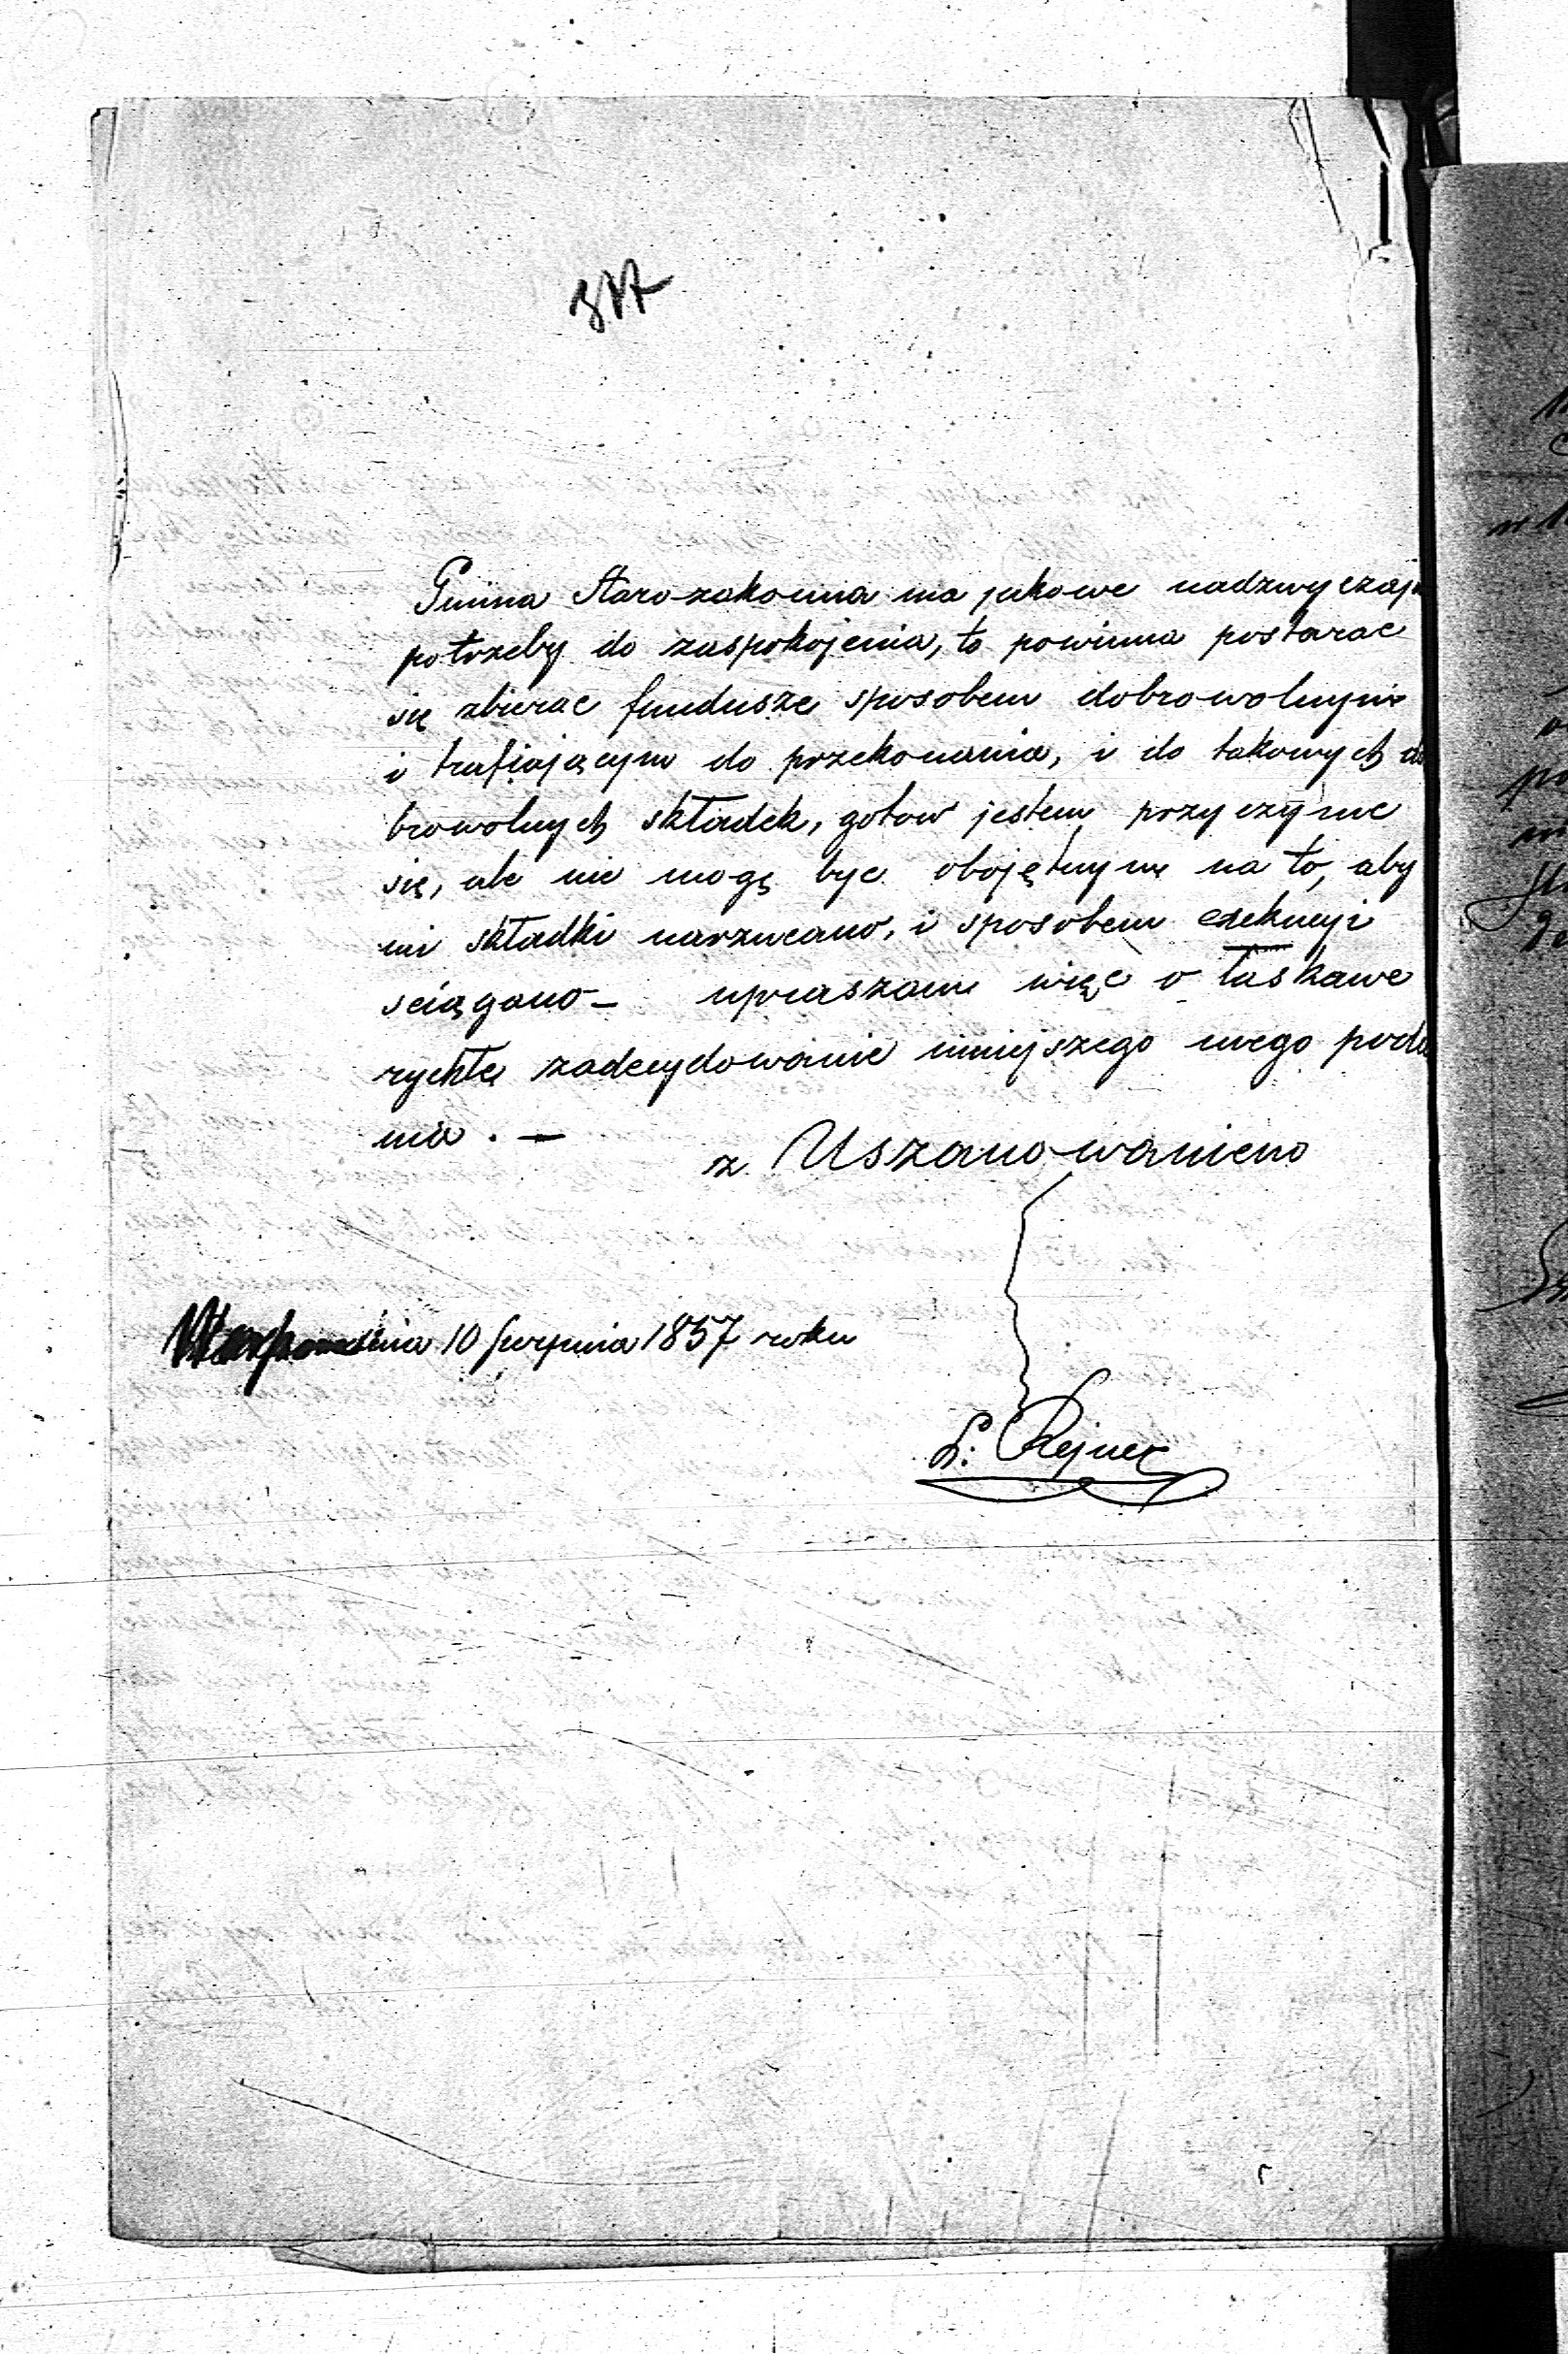 Gmina Starozakonna ma jakowe nadzwyczajn
potrzeby do zaspokojenia, to powinna postarac
się zbierac fundusze sposobem dobrowolnym
i trafiającym do przekonania, i do takowych do
browolnych składek, gotow jestem przyczynic
się, ale nie mogę byc obojętnym na to, aby
mi składki narzucano, i sposobem exekucyi
sciągano – upraszam więc o łaskawe
rychłe zadecydowanie niniejszego mego poda
nia . —
z Uszanowaniem
dnia 10 Sierpnia 1857 roku
L: Rejner